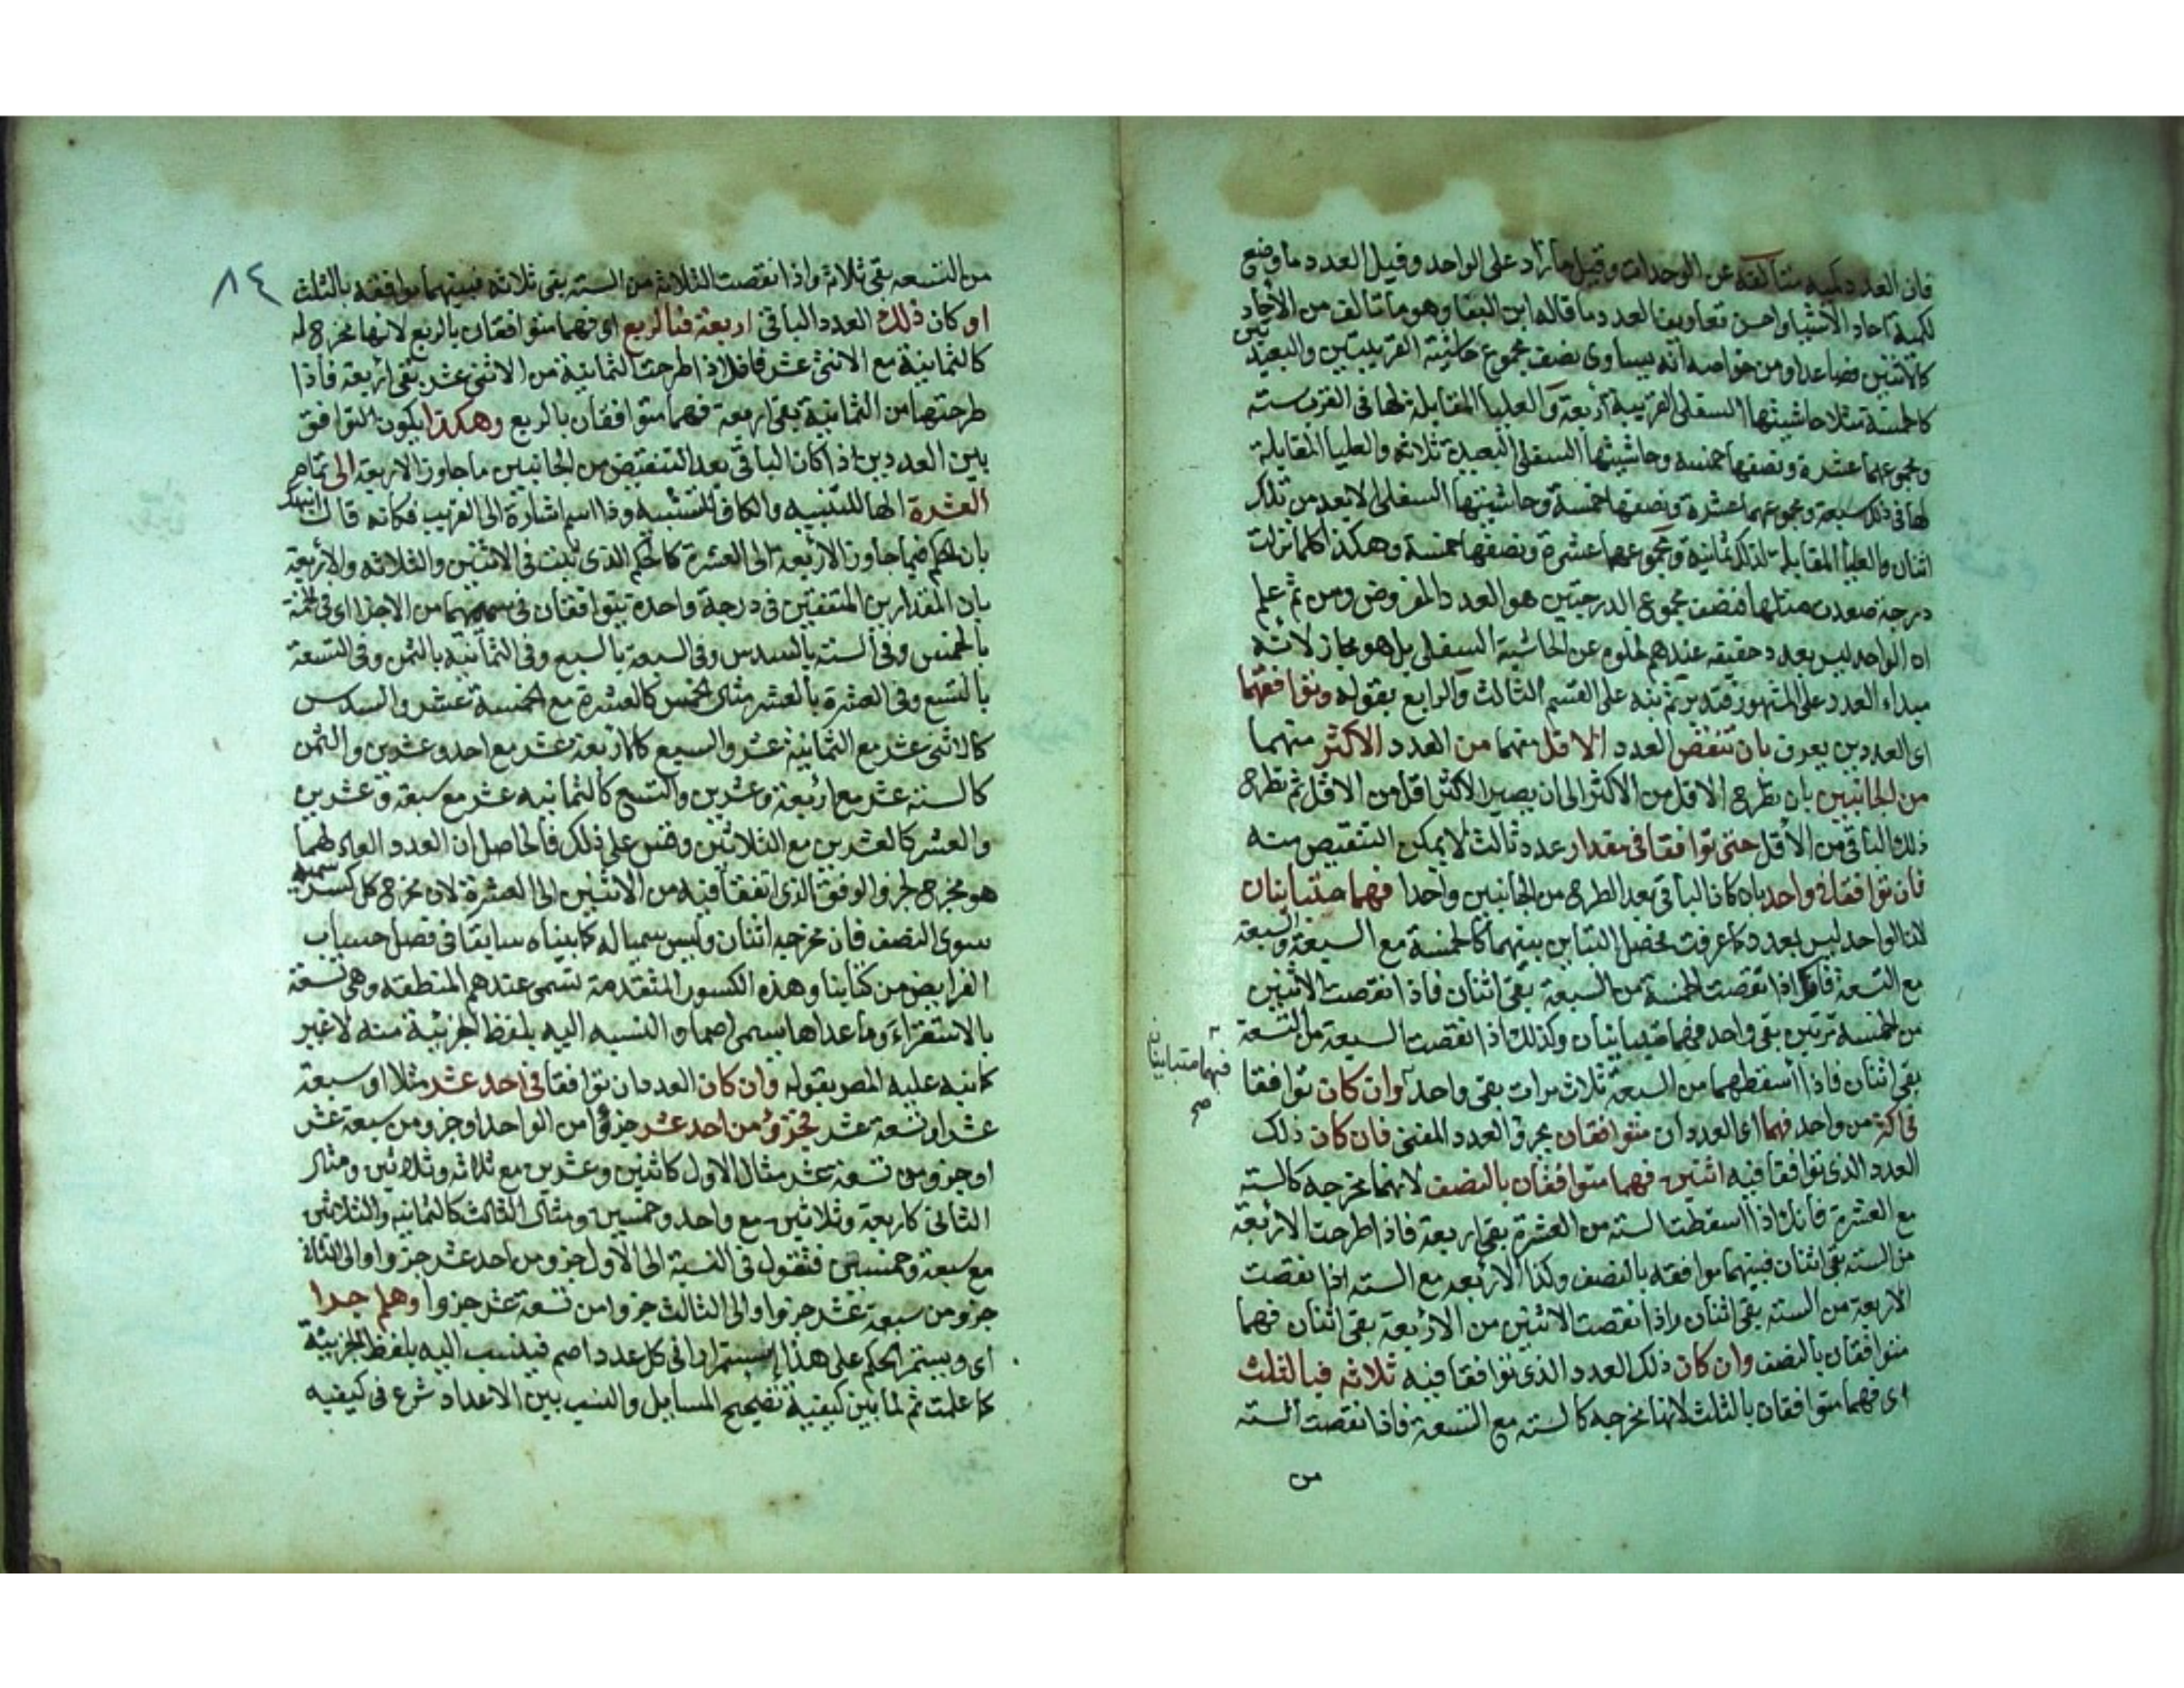 فان العدد كمية متألفة عن الوحدات وقيل ما زاد على الواحد وقيل العدد ما وضع
لكمية احاد الاشيا واحسن تعاريف العدد ما قاله ابن البنا وهو ما تالف من الأحاد
كالاثنين فصاعدا ومن خواصه انه يساوى نصف مجموع حاشيتيه القريبتين والبعيدتين
كالخمسة مثلا حاشيتها السفلى القريبة أربعة والعليا المقابلة لها فى القرب سته
ومجموعهما عشرة ونصفها خمسه وحاشيتها السفلى البعيدة ثلاثه والعليا المقابلة
لها فى ذلك سبعة ومجموعهما عشرة ونصفها خمسة وحاشيتها السفلى الابعد من تلك
اثنان والعليا المقابلة لتلك ثمانية ومجموعهما عشرة ونصفها خمسة وهكذا كلما نزلت
درجة صعدت مثلها فنصف مجموع الدرجتين هو العدد المفروض ومن ثم علم
ان الواحد ليس بعدد حقيقه عندهم لخلوه عن الحاشية السفلى بل هو مجاز لانه
مبداء العدد على المشهور قد بن ثم نبه على القسم الثالث والرابع بقوله وتوافقهما
اى العددين يعرف بان تنقص العدد الاقل منهما من العدد الاكثر منهما
من الجانبين بان تطرح الاقل من الاكثر الى ان يصير الاكثر اقل من الاقل ثم تطرح
ذلك الباقى من الأقل حتى توافقا فى مقدار عدد ثالث لا يمكن التنقيص منه
فان توافقا فى واحد بان كان الباقى بعد الطرح من الجانبين واحدا فهما متباينان
لان الواحد ليس بعدد كما عرفت فحصل التباين بينهما كالخمسة مع السبعة والسبعة
مع التسعة فانك اذا نقصت الخمسة من السبعة بقى اثنان فاذا نقصت الاثنين
من الخمسه مرتين بقى واحد فهما متباينان وكذلك اذا نقصت السبعة من التسعة
بقى اثنان فاذا أسقطهما من السبعة ثلاث مرات بقى واحد وان كان توافقا
فهما متباينان صح
فى اكثر من واحد فهما اى العددان متوافقان بجزؤ العدد المفنى فان كان ذلك
العدد الذى توافقا فيه اثنين فهما متوافقان بالنصف لانهما مخرجه كالسته
مع العشرة فانك اذا اسقطت السته من العشرة بقى اربعة فاذا طرحت الأربعة
من السته بقى اثنان فبينهما موافقه بالنصف وكذا الأربعه مع السته اذا نقصت
الاربعة من السته بقى اثنان واذا نقصت الاثنين من الأربعة بقى اثنان فهما
متوافقان بالنصف وان كان ذلك العدد الذى توافقا فيه ثلاثه فبالثلث
اى فهما متوافقان بالثلث لانها مخرجه كالسته مع التسعة فاذا نقصت السته
من
٨٤
من التسعه بقى ثلاثه واذا نقصت الثلاثة من السته بقى ثلاثه فبينهما موافقه بالثلث
او كان ذلك العدد الباقى اربعة فبالربع اى فهما متوافقان بالربع لانها مخرج له
كالثمانية مع الاثنى عشر فانك اذا طرحت الثمانية من الاثنى عشر بقى اربعة فاذا
طرحتها من الثمانية بقى اربعة فهما متوافقان بالربع وهكذا يكون التوافق
بين العددين اذا كان الباقى بعد التنقيص من الجانبين ما جاوز الاربعة الى تمام
العشرة الها للتنبيه والكاف للتشبيه وذا اسم اشارة الى القريب فكانه قال انبهك
بان الحكم فيما جاوز الأربعة الى العشرة كالحكم الذى ثبت فى الاثنين والثلاثه والأربعة
بان المقدارين المتفقين فى درجة واحدة يتوافقان فى سميهما من الاجزا اى فى الخمسة
بالخمس وفى السته بالسدس وفى السبعة بالسبع وفى الثمانية بالثمن وفى التسعة
بالتسع وفى العشرة بالعشر مثال الخمس كالعشرة مع الخمسة عشر والسدس
كالاثنى عشر مع الثمانية عشر والسبع كالاربعة عشر مع احد وعشرين والثمن
كالستة عشر مع اربعة وعشرين والتسع كالثمانيه عشر مع سبعة وعشرين
والعشر كالعشرين مع الثلاثين وقس على ذلك فالحاصل ان العدد العاد لهما
هو مخرج لجزؤ الوفق الذى اتفقا فيه من الاثنين الى العشرة لان مخرج كل كسر سميه
سوى النصف فان مخرجه اثنان وليس سميا له كما بيناه سابقا فى فصل حساب
الفرايض من كتابنا وهذه الكسور المتقدمة تسمى عندهم المنطقه وهى تسعة
بالاستقراء وما عداها يسمى اصما والنسبه اليه بلفظ الجزئية منه لا غير
كما نبه عليه المص بقوله وان كان العددان توافقا فى احد عشر مثلا او سبعة
عشر او تسعة عشر فجزؤ من احد عشر جزؤا من الواحد او جزو من سبعة عشر
او جزو من تسعة عشر مثال الاول كاثنين وعشرين مع ثلاثه وثلاثين ومثال
الثانى كاربعة وثلاثين مع واحد وخمسين ومثال الثالث كالثمانيه والثلاثين
مع سبعة وخمسين فتقول فى النسبة الى الأول جزو من احد عشر جزوا والى الثانى
جزو من سبعة عشر جزوا والى الثالث جزوا من تسعة عشر جزوا وهلم جرا
اى ويستمر الحكم على هذا استمرارا فى كل عدد اصم فينسب اليه بلفظ الجزئية
كما علمت ثم لما بين كيفية تصحيح المسايل والنسب بين الاعداد شرع فى كيفيه